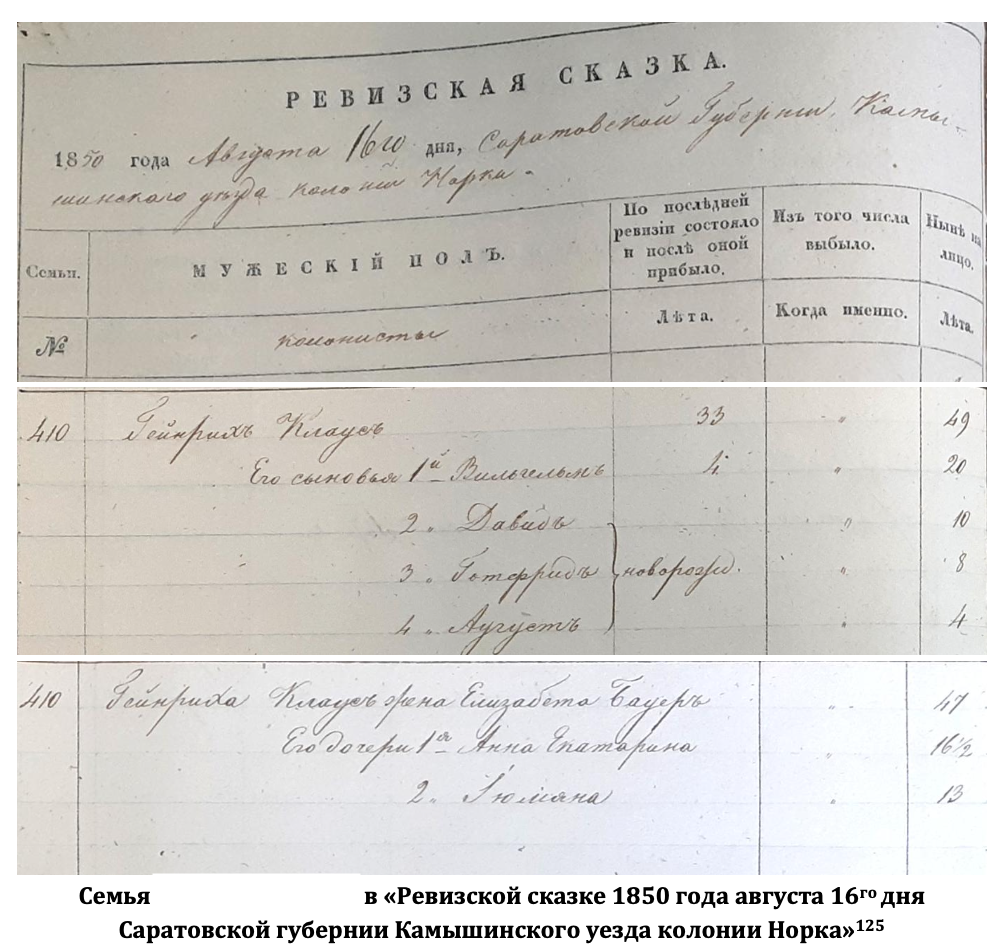 РЕВИЗСКАЯ СКАЗКА.
1850 года Августа 16го дня, Саратовской Губернии, Камы-
шинскаго уѣзда колоніи Норка.
Семьи.
МУЖЕСКІЙ ПОЛЪ.
По послѣдней ревизіи состояло и послѣ оной прибыло.
Изъ того числа выбыло.
Нынѣ на лицо.
№
колонисты
Лѣта.
Когда именно.
Лѣта.
410 Гейнрихъ Клаусъ 33 " 49
Его сыновья 1й Вильгельмъ 4 " 20
2 " Давидъ " 10
3 " Готфридъ новорожд. " 8
4 " Аугустъ " 4
410 Гейнриха Клаусъ жена Елизабета Бауеръ " 47
Его дочери 1я Анна Екатарина " 16½
2 " " 13
Семья в «Ревизской сказке 1850 года августа 16го дня
Саратовской губернии Камышинского уезда колонии Норка»125